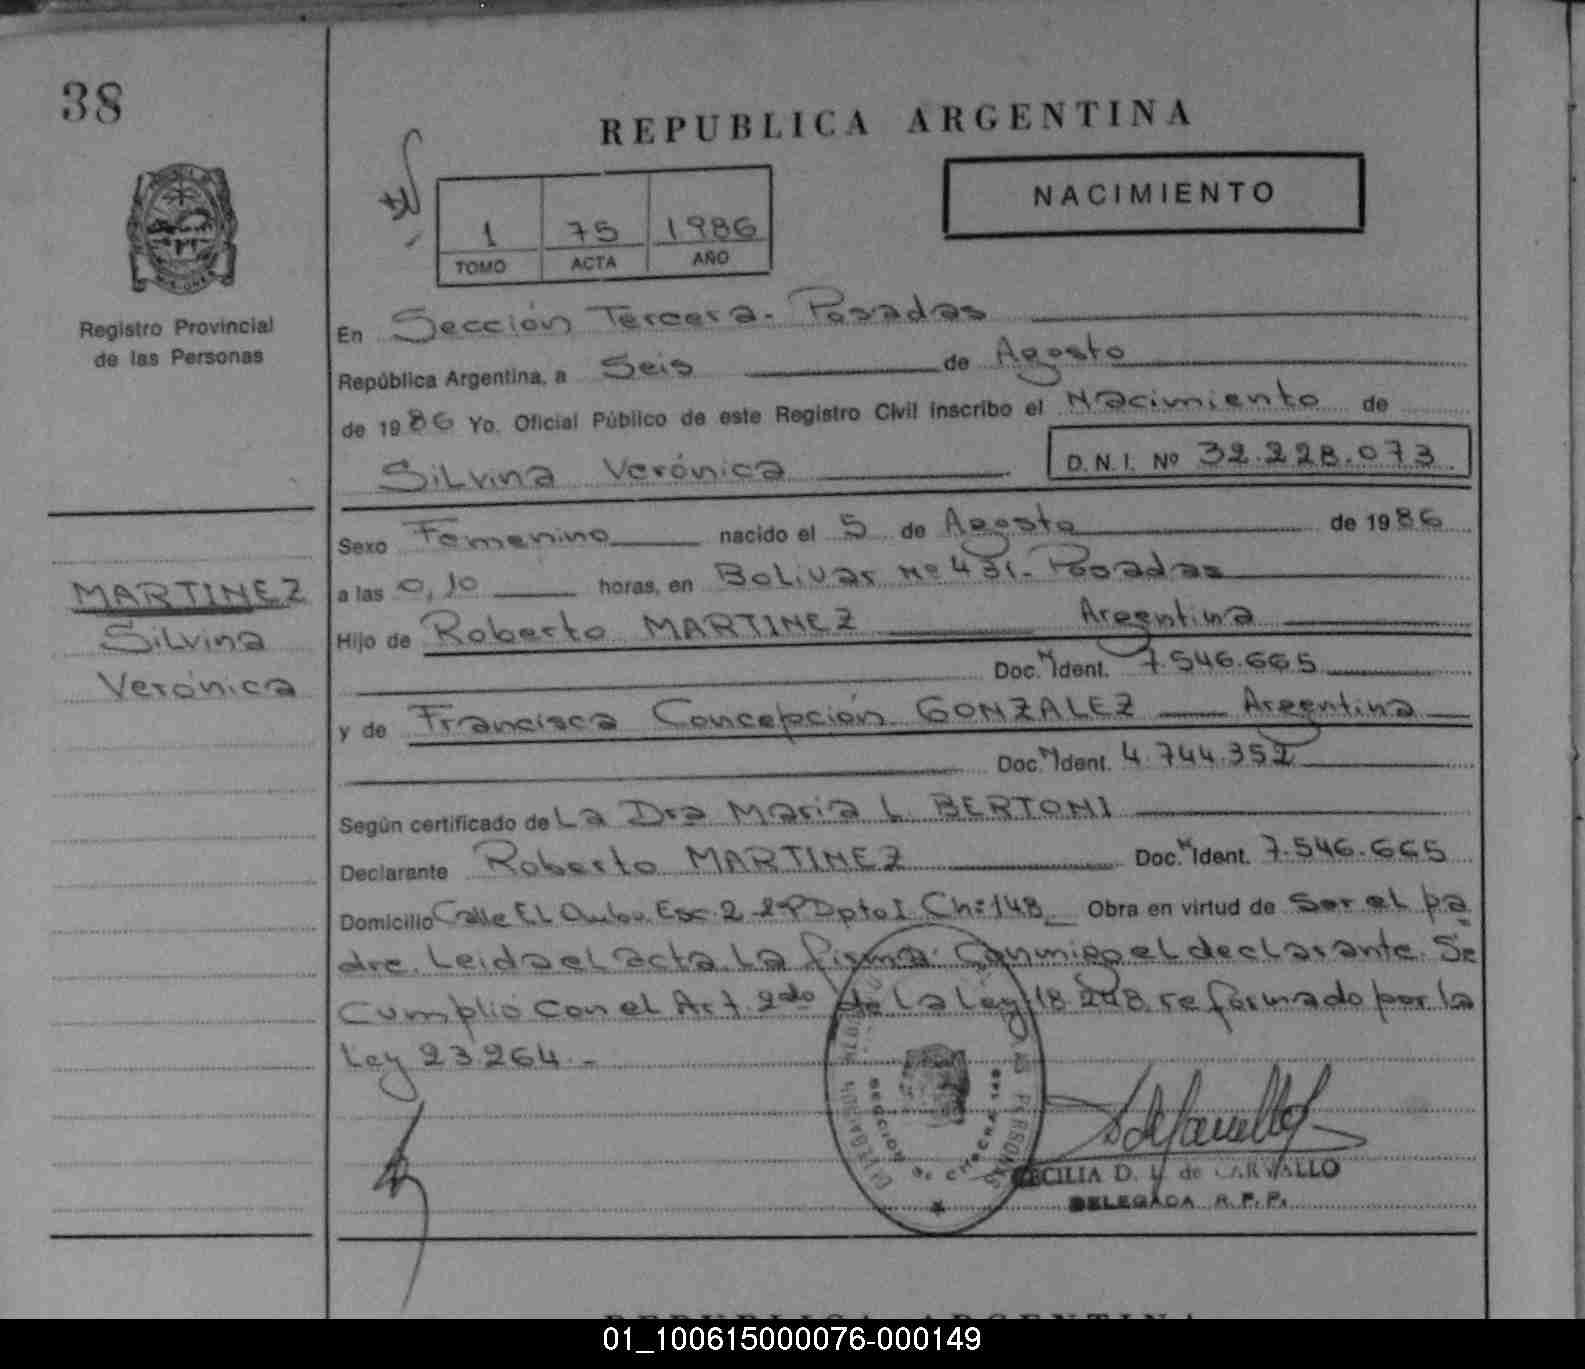 38
REPUBLICA ARGENTINA
NACIMIENTO
1 75 1986
TOMO ACTA AÑO
Registro Provincial
de las Personas
En Sección Tercera. Posadas
República Argentina, a Seis de Agosto
de 1986 Yo. Oficial Público de este Registro Civil inscribo el Nacimiento de
Silvina Verónica D.N.I. Nº 32.228.073
Sexo Femenino nacido el 5 de Agosto de 1986
MARTINEZ
Silvina
Verónica
a las 0,10 horas, en Bolivar Nº 431. Posadas
Hijo de Roberto MARTINEZ Argentina
Doc. M Ident. 7.546.665
y de Francisca Concepción GONZALEZ Argentina
Doc. M Ident. 4.744.352
Según certificado de La Dra Maria L. BERTONI
Declarante Roberto MARTINEZ Doc. M Ident. 7.546.665
Domicilio Calle El Esc. 2 2ºP Dpto I Ch: 148 Obra en virtud de Ser el pa
dre. Leida el acta. La firma Conmigo el declarante. Se
Cumplio Con el Art. 2do de La Ley 18.248 reformado por la
Ley 23264.-
PERSONAS
SECCION CHACRA 148
CECILIA D. de CARVALLO
DELEGADA R.P.P.
REPUBLICA ARGENTINA
01_100615000076-000149